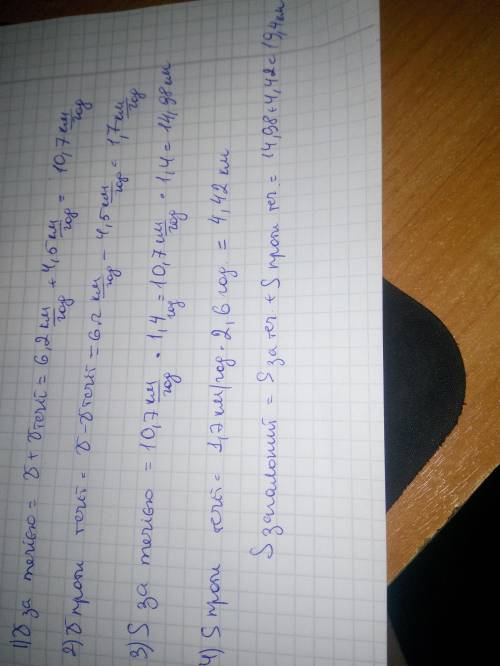 1) υ за течією = υ + υ течії = 6,2 км/год + 4,5 км/год = 10,7 км/год
2) υ проти течії = υ - υ течії = 6.2 км/год - 4,5 км/год = 1,7 км/год
3) S за течією = 10,7 км/год · 1,4 = 10,7 км/год · 1,4 = 14,98 км
4) S проти течії = 1,7 км/год · 2,6 год. = 4,42 км
S загальний = S за теч + S проти теч = 14,98+4,42=19,4 км